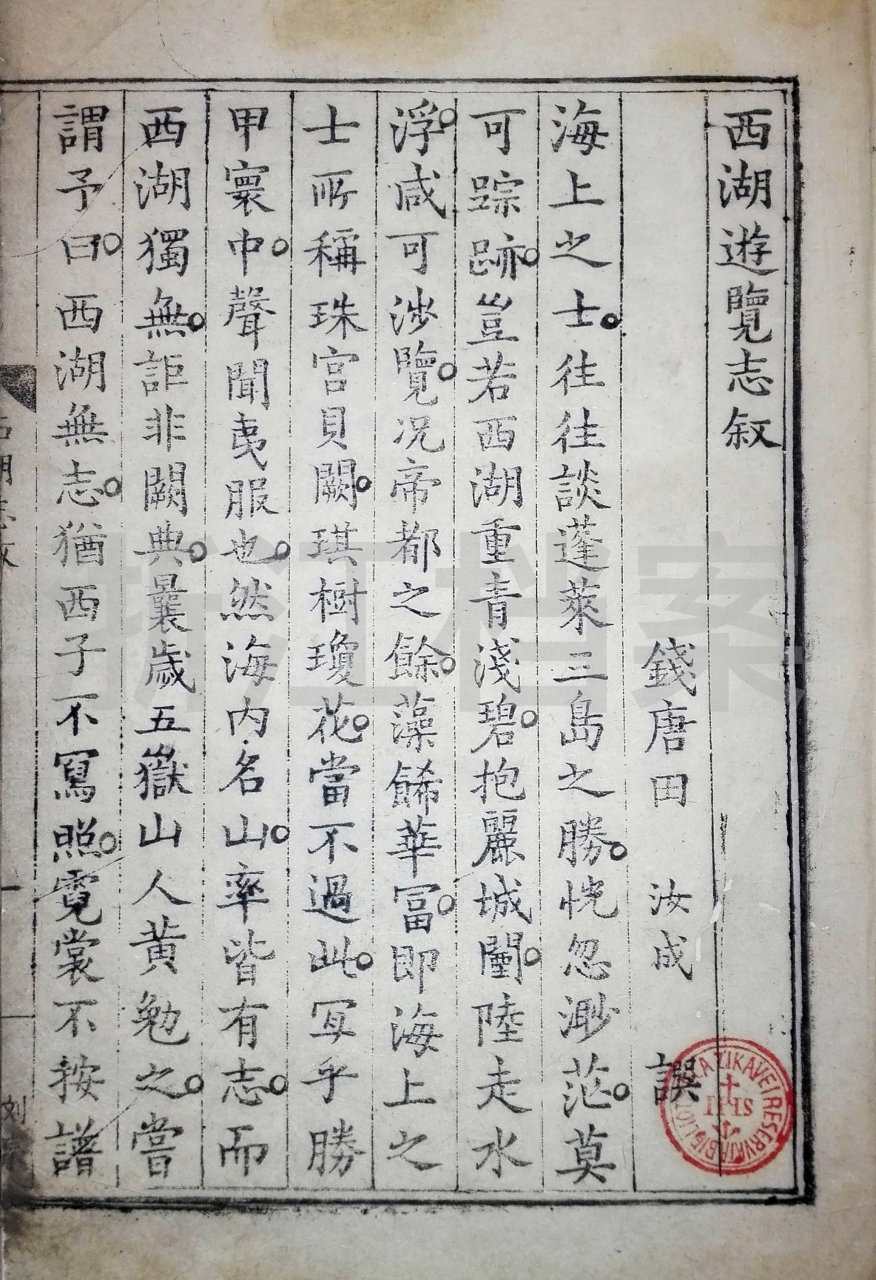 西湖遊覽志叙
錢唐田 汝成 譔
海上之士往往談蓬萊三島之勝恍忽渺茫莫
可踪跡豈若西湖重青淺碧抱麗城闉陸走水
浮咸可涉覽况帝都之餘藻餙華冨即海上之
士所稱珠宫貝闕琪樹瓊花當不過此冝乎勝
甲寰中聲聞夷服也然海内名山率皆有志而
西湖獨無詎非闕典曩歲五嶽山人黄勉之嘗
謂予曰西湖無志猶西子不冩照霓裳不按譜
西湖志叙
刘
浙江档案
BIBLIOTHECA ZIKAVEI RESERVATA
IHS